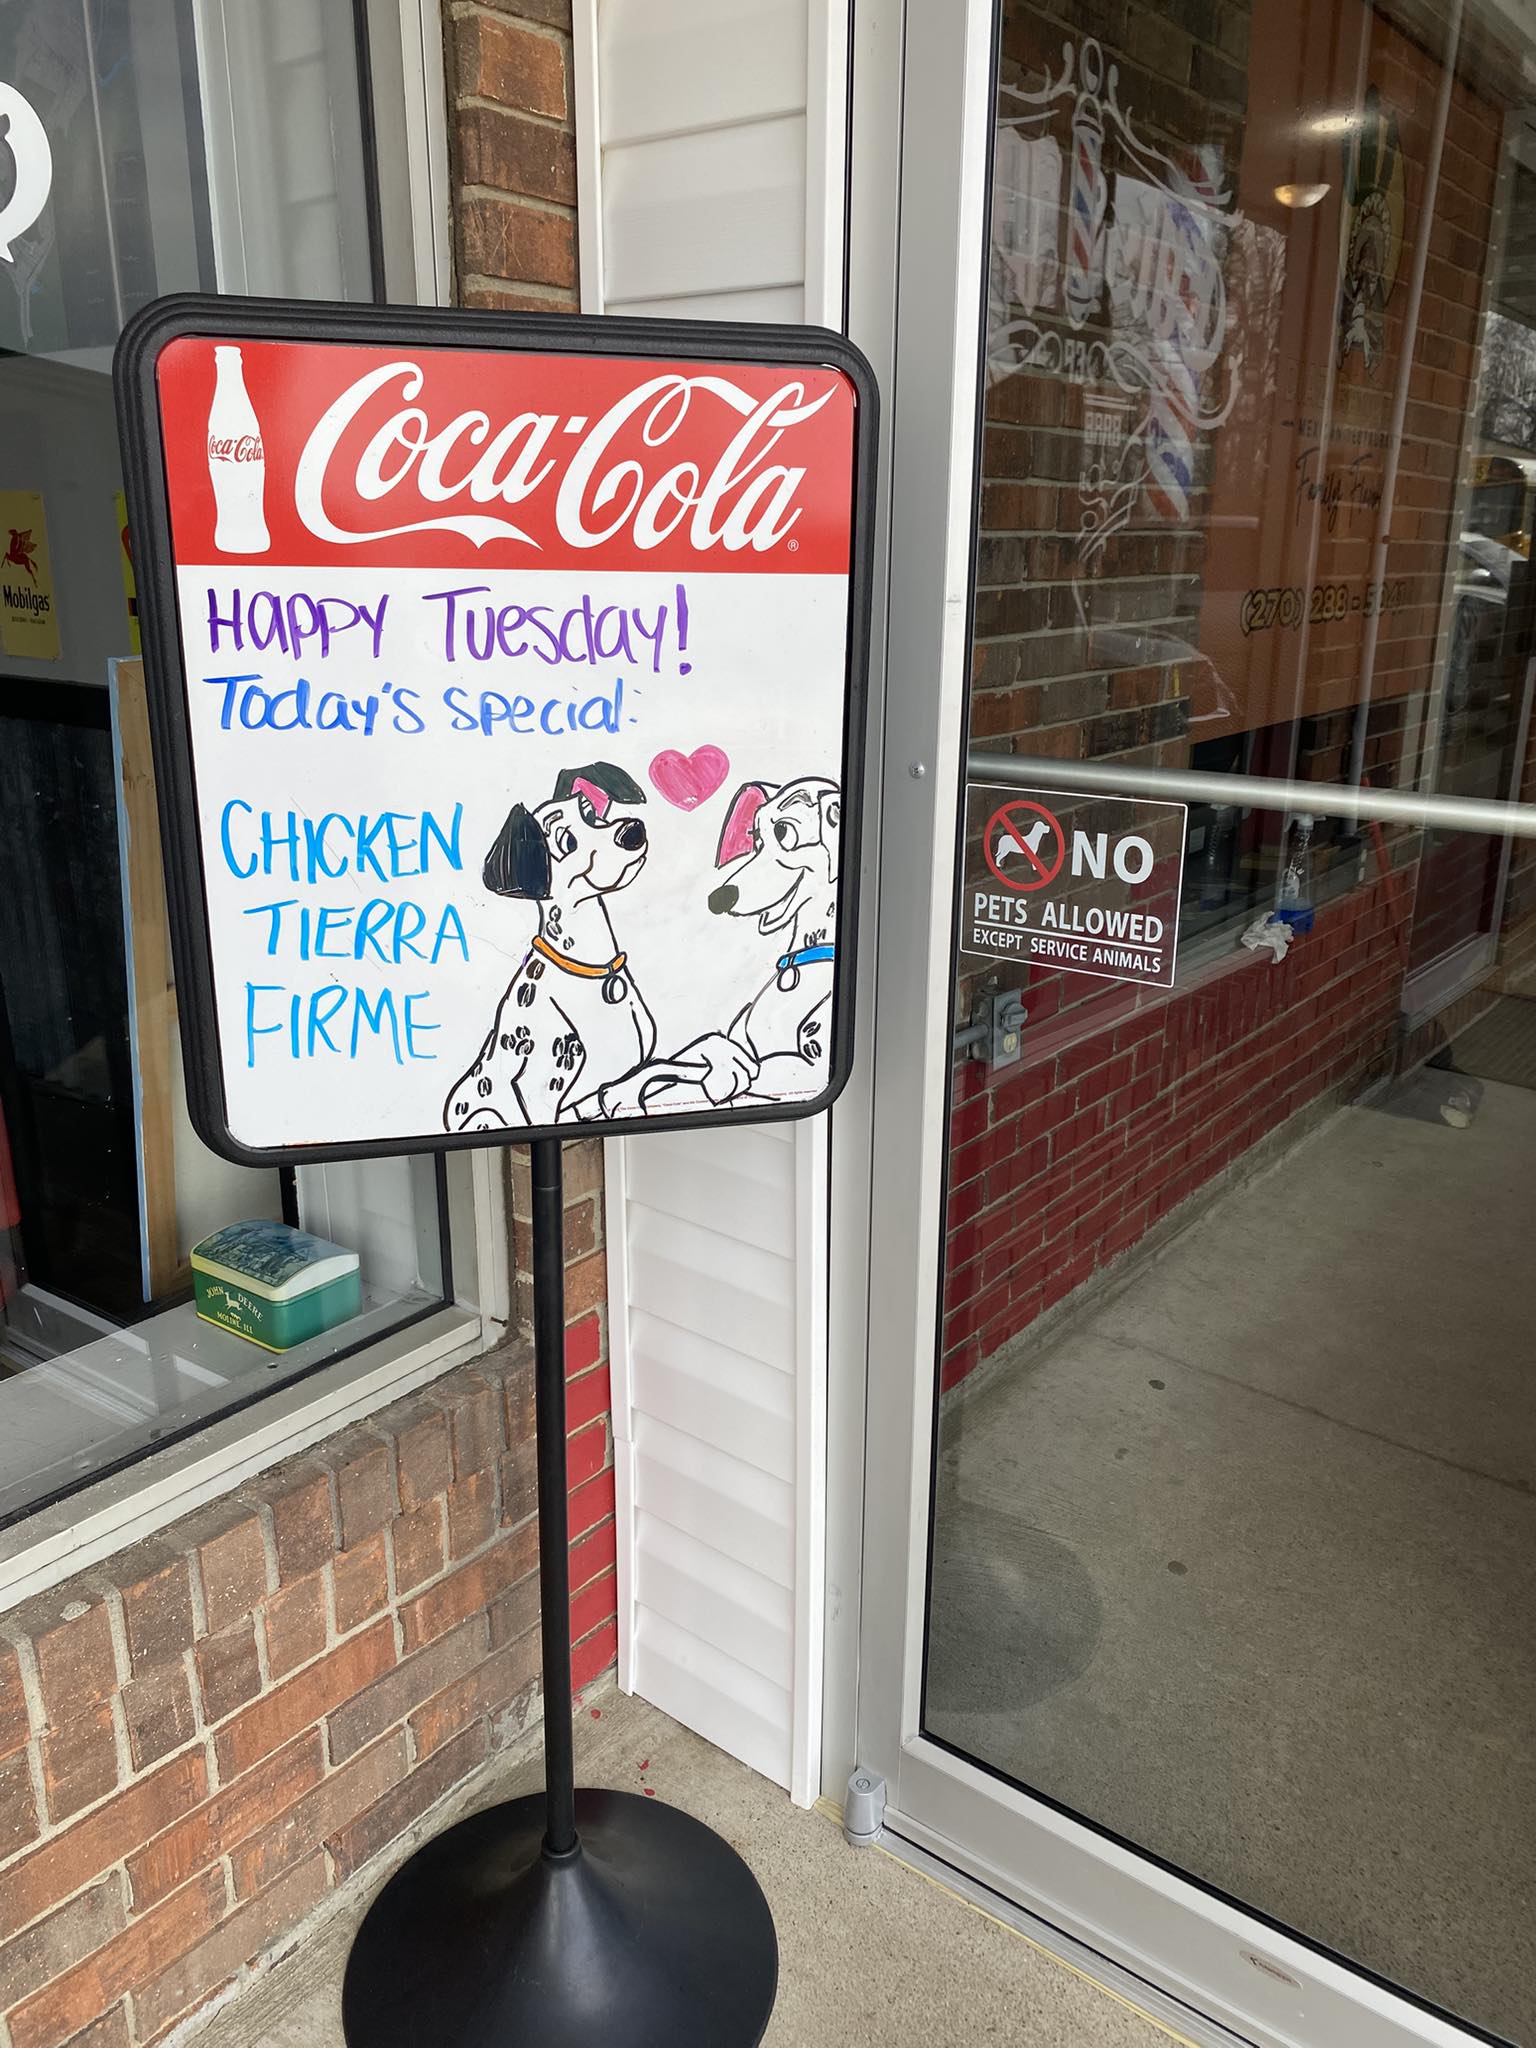 Coca-Cola
Coca-Cola®
HAPPY TUESDAY!
Today's Special:
CHICKEN
TIERRA
FIRME
Mobilgas
JOHN DEERE
MOLINE, ILL
NO
PETS ALLOWED
EXCEPT SERVICE ANIMALS
BARB
Family
(270) 288-5